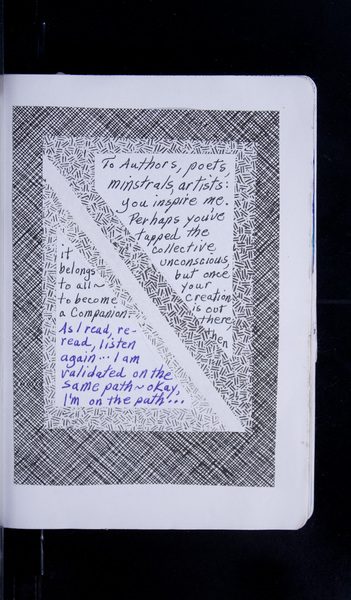 To Authors, poets,
minstrals, artists:
you inspire me.
Perhaps you've
tapped the
collective
unconscious,
but once
your
creation
is out
there,
then
it
belongs
to all~
to become
a Companion.
As I read, re-
read, listen
again... I am
validated on the
same path~okay,
I'm on the path...